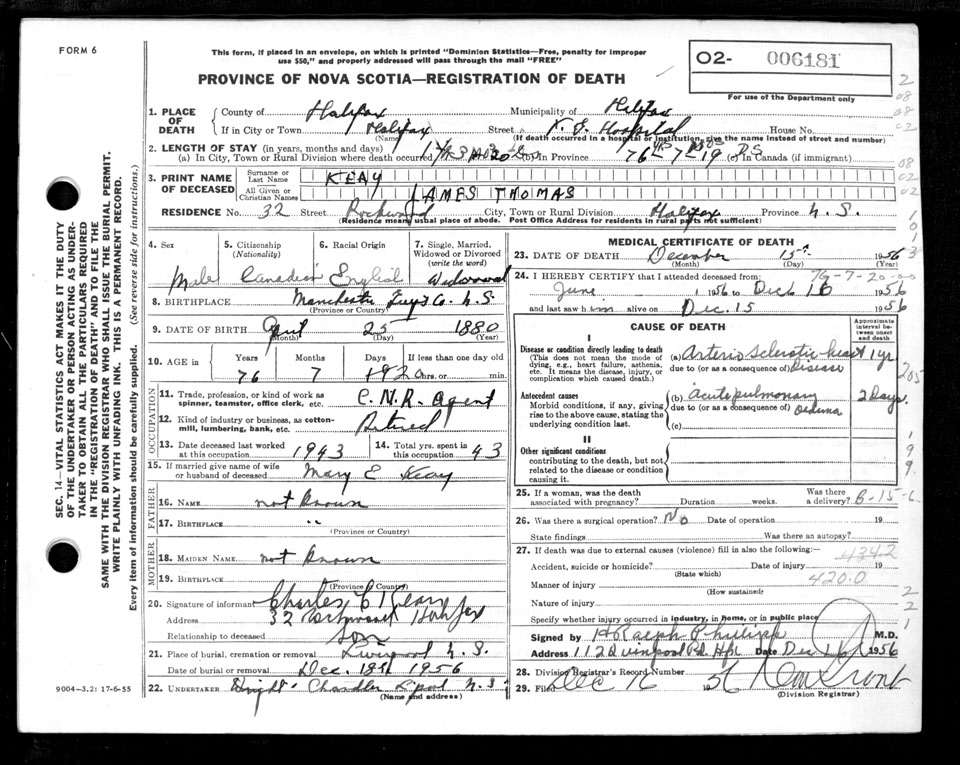 FORM 6
This form, if placed in an envelope, on which is printed "Dominion Statistics—Free, penalty for improper
use $50," and properly addressed will pass through the mail "FREE"
O2- 006181
For use of the Department only
PROVINCE OF NOVA SCOTIA—REGISTRATION OF DEATH
1. PLACE OF DEATH County of Halifax Municipality of Halifax
If in City or Town Halifax (Name) Street N. S. Hospital House No.
(If death occurred in a hospital or institution, give the name instead of street and number)
2. LENGTH OF STAY (in years, months and days)
(a) In City, Town or Rural Division where death occurred (b) In Province 76-7-19 (c) In Canada (if immigrant)
3. PRINT NAME OF DECEASED Surname or Last Name KEAY
All Given or Christian Names JAMES THOMAS
RESIDENCE No. 32 Street City, Town or Rural Division Halifax Province N. S.
(Residence means usual place of abode. Post Office Address for residents in rural parts not sufficient)
4. Sex Male
5. Citizenship (Nationality) Canadian
6. Racial Origin English
7. Single, Married, Widowed or Divorced (write the word) Widowed
8. BIRTHPLACE Manchester Guys Co. N. S.
(Province or Country)
9. DATE OF BIRTH (Month) 25 (Day) 1880 (Year)
10. AGE in Years 76 Months 7 Days If less than one day old hrs. or min.
OCCUPATION
11. Trade, profession, or kind of work as spinner, teamster, office clerk, etc. C. N. R. Agent
12. Kind of industry or business, as cotton-mill, lumbering, bank, etc. Retired
13. Date deceased last worked at this occupation 1943
14. Total yrs. spent in this occupation 43
15. If married give name of wife or husband of deceased Mary E Keay
FATHER
16. NAME not known
17. BIRTHPLACE "
(Province or Country)
MOTHER
18. MAIDEN NAME not known
19. BIRTHPLACE
(Province or Country)
20. Signature of informant Charles Keay
Address 32 Halifax
Relationship to deceased son
21. Place of burial, cremation or removal Liverpool N. S.
Date of burial or removal Dec. 18th 1956
22. UNDERTAKER Chandler L'pool N. S.
(Name and address)
9004-3.2: 17-6-55
MEDICAL CERTIFICATE OF DEATH
23. DATE OF DEATH December (Month) 15th (Day) 1956 (Year)
24. I HEREBY CERTIFY that I attended deceased from: 76-7-20
June 1 1956 to Dec 16 1956
and last saw him alive on Dec. 15 1956
CAUSE OF DEATH
Approximate interval between onset and death
I
Disease or condition directly leading to death
(This does not mean the mode of dying, e.g., heart failure, asthenia, etc. It means the disease, injury, or complication which caused death.)
(a) Arterio sclerotic heart Disease 1 yr
due to (or as a consequence of)
Antecedent causes
Morbid conditions, if any, giving rise to the above cause, stating the underlying condition last.
(b) Acute pulmonary Oedema 2 Days
due to (or as a consequence of)
(c)
II
Other significant conditions
contributing to the death, but not related to the disease or condition causing it.
25. If a woman, was the death associated with pregnancy? Duration weeks. Was there a delivery?
26. Was there a surgical operation? No Date of operation 19
State findings Was there an autopsy?
27. If death was due to external causes (violence) fill in also the following:— 4342
Accident, suicide or homicide? (State which) Date of injury 19
420.0
Manner of injury
(How sustained)
Nature of injury
Specify whether injury occurred in industry, in home, or in public place
Signed by H Ralph Phillips M.D.
Address 112 Quinpool Rd. Hfx Date Dec 16 1956
28. Division Registrar's Record Number
29. Filed Dec 16 1956
(Division Registrar)
SEC. 14—VITAL STATISTICS ACT MAKES IT THE DUTY
OF THE UNDERTAKER OR PERSON ACTING AS UNDER-
TAKER TO OBTAIN ALL THE PARTICULARS REQUIRED
IN THE "REGISTRATION OF DEATH" AND TO FILE THE
SAME WITH THE DIVISION REGISTRAR WHO SHALL ISSUE THE BURIAL PERMIT.
WRITE PLAINLY WITH UNFADING INK. THIS IS A PERMANENT RECORD.
Every item of information should be carefully supplied. (See reverse side for instructions.)